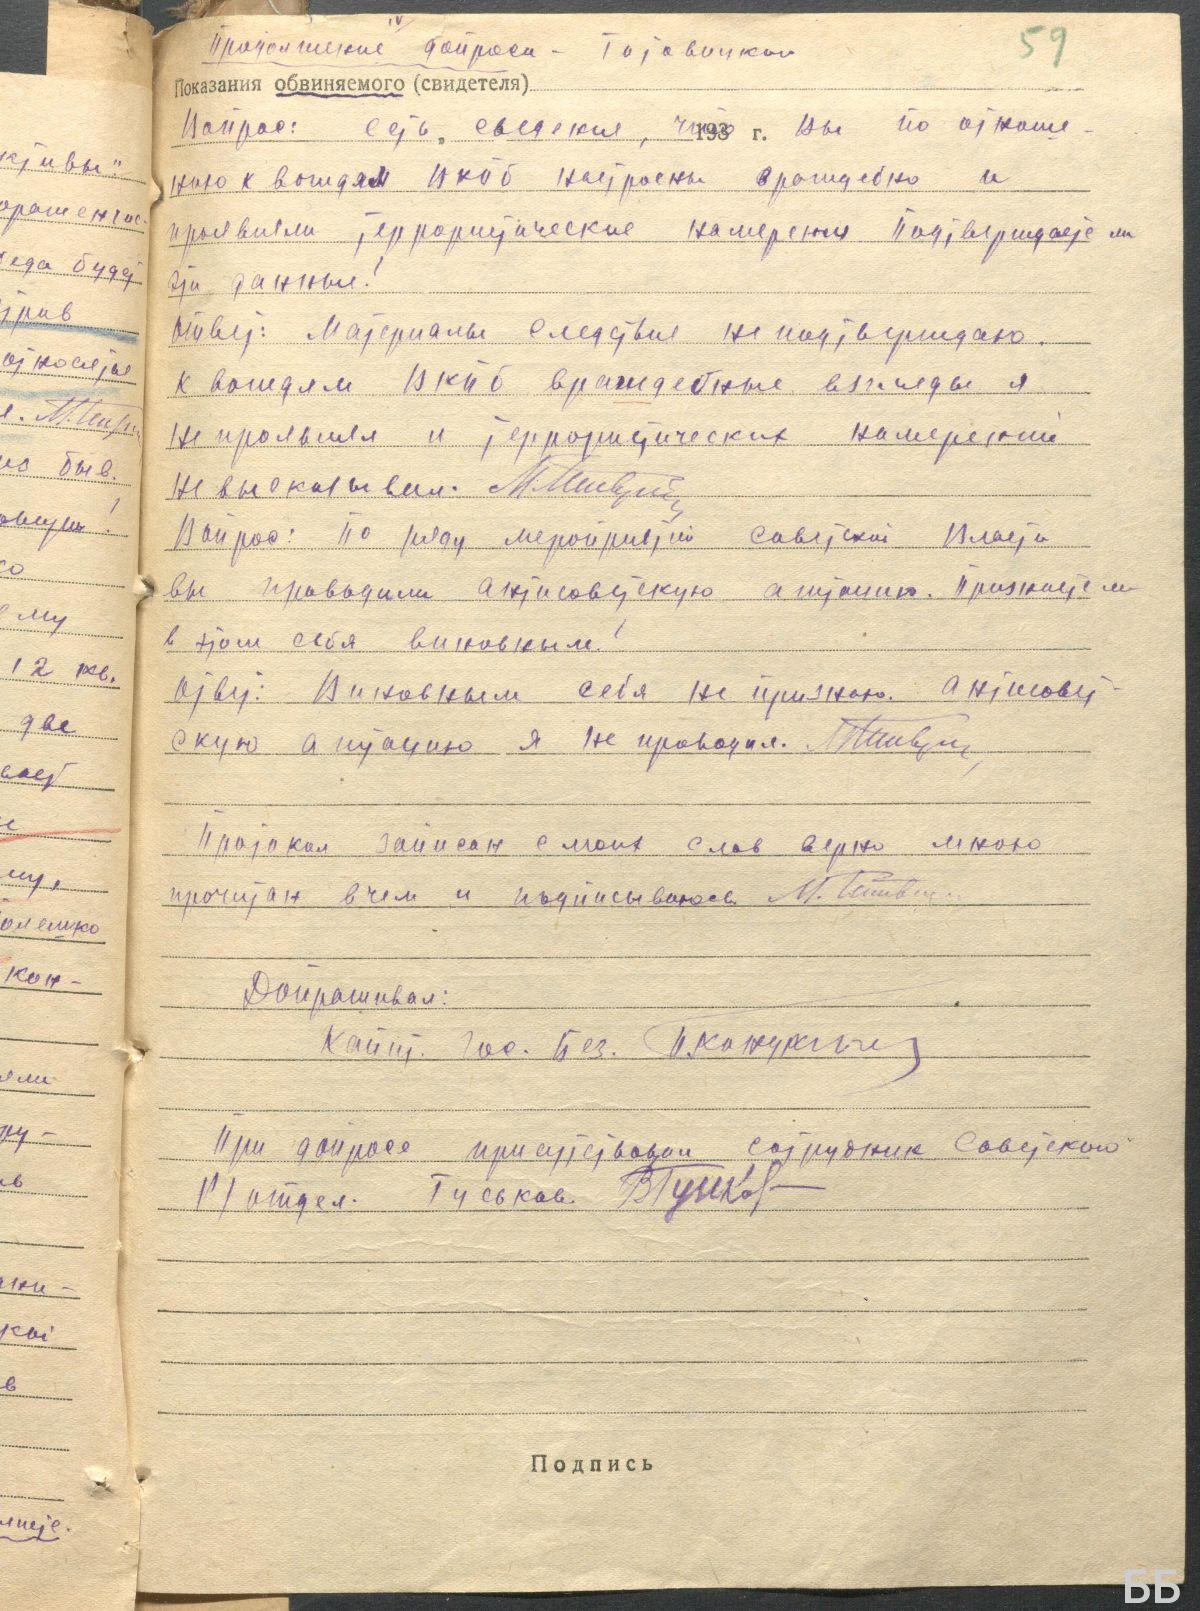 59
Продолжение допроса -
Показания обвиняемого (свидетеля)
193 г.
Вопрос: Есть сведения, что Вы по отноше-
нию к вождям ВКПб настроены враждебно и
проявляли террористические намерения Подтверждаете ли
эти данные!
Ответ: Материалы Следствия не подтверждаю.
К вождям ВКПб враждебные взгляды я
не проявлял и террористических намерений
не высказывал.
Вопрос: По ряду мероприятий Советской Власти
вы проводили антисоветскую агитацию. Признаете ли
в этом себя виновным!
Ответ: Виновным себя не признаю. Антисовет-
скую агитацию я не проводил.
Протокол записан с моих слов верно мною
прочитан в чем и подписываюсь
Допрашивал:
Капит. Гос. Без.
При допросе присутствовал сотрудник Советского
Р/отдел. Гуськов.
Подпись
ктивы"
еда будет
относятся
из быв.
ему
12 кв.
две
кон-
в
ББ